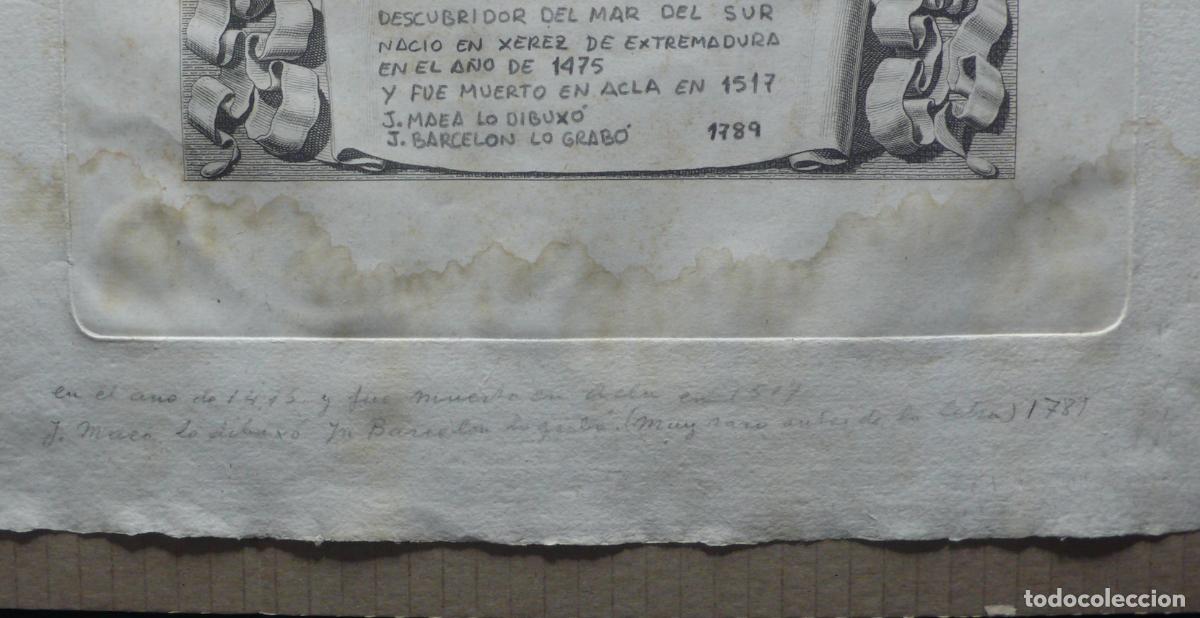 DESCUBRIDOR DEL MAR DEL SUR
NACIO EN XEREZ DE EXTREMADURA
EN EL AÑO DE 1475
Y FUE MUERTO EN ACLA EN 1517
J. MAEA LO DIBUXÓ
J. BARCELON LO GRABÓ 1789
en el ano de 1475 y fue muerto en Acla en 1517
J. Maea Lo dibuxó Jn Barcelon Lo grabó. (Muy raro antes de la letra) 1789
todocoleccion